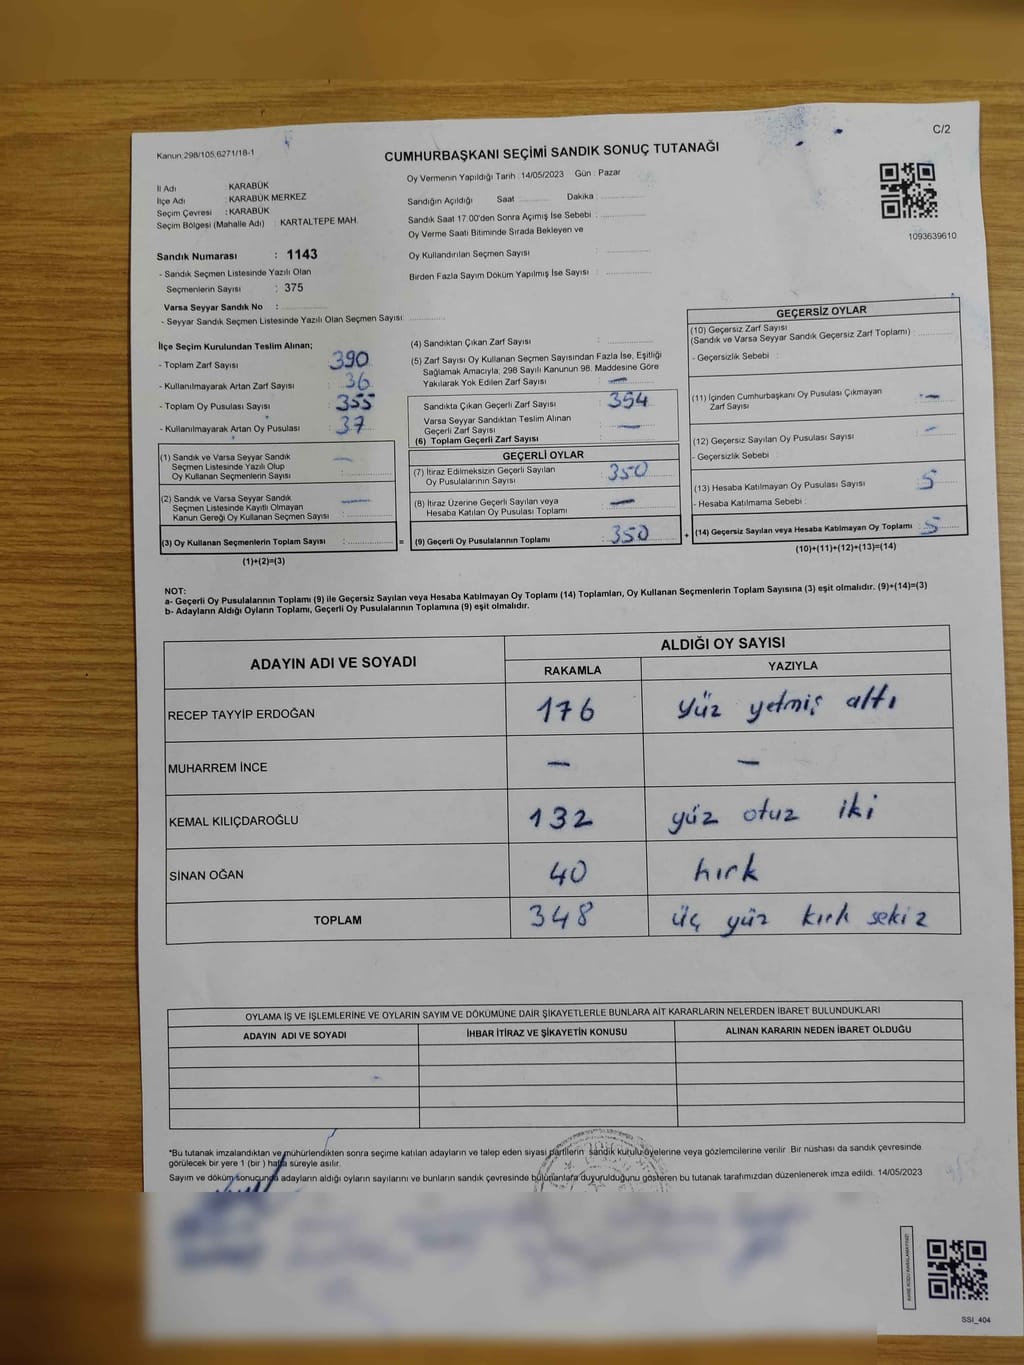 C/2
Kanun:298/105,6271/18-1
CUMHURBAŞKANI SEÇİMİ SANDIK SONUÇ TUTANAĞI
İl Adı : KARABÜK
İlçe Adı : KARABÜK MERKEZ
Seçim Çevresi : KARABÜK
Seçim Bölgesi (Mahalle Adı) : KARTALTEPE MAH.
Sandık Numarası : 1143
- Sandık Seçmen Listesinde Yazılı Olan
Seçmenlerin Sayısı : 375
Varsa Seyyar Sandık No :
- Seyyar Sandık Seçmen Listesinde Yazılı Olan Seçmen Sayısı:
Oy Vermenin Yapıldığı Tarih : 14/05/2023 Gün : Pazar
Sandığın Açıldığı Saat Dakika
Sandık Saat 17.00'den Sonra Açımış İse Sebebi :
Oy Verme Saati Bitiminde Sırada Bekleyen ve
Oy Kullandırılan Seçmen Sayısı :
Birden Fazla Sayım Döküm Yapılmış İse Sayısı :
1093639610
İlçe Seçim Kurulundan Teslim Alınan;
- Toplam Zarf Sayısı : 390
- Kullanılmayarak Artan Zarf Sayısı : 36
- Toplam Oy Pusulası Sayısı : 355
- Kullanılmayarak Artan Oy Pusulası : 37
(1) Sandık ve Varsa Seyyar Sandık
Seçmen Listesinde Yazılı Olup
Oy Kullanan Seçmenlerin Sayısı : —
(2) Sandık ve Varsa Seyyar Sandık
Seçmen Listesinde Kayıtlı Olmayan
Kanun Gereği Oy Kullanan Seçmen Sayısı : —
(3) Oy Kullanan Seçmenlerin Toplam Sayısı : =
(1)+(2)=(3)
(4) Sandıktan Çıkan Zarf Sayısı :
(5) Zarf Sayısı Oy Kullanan Seçmen Sayısından Fazla İse, Eşitliği
Sağlamak Amacıyla; 298 Sayılı Kanunun 98. Maddesine Göre
Yakılarak Yok Edilen Zarf Sayısı : —
Sandıkta Çıkan Geçerli Zarf Sayısı : 354
Varsa Seyyar Sandıktan Teslim Alınan
Geçerli Zarf Sayısı : —
(6) Toplam Geçerli Zarf Sayısı
GEÇERLİ OYLAR
(7) İtiraz Edilmeksizin Geçerli Sayılan
Oy Pusulalarının Sayısı : 350
(8) İtiraz Üzerine Geçerli Sayılan veya
Hesaba Katılan Oy Pusulası Toplamı : —
(9) Geçerli Oy Pusulalarının Toplamı : 350 +
GEÇERSİZ OYLAR
(10) Geçersiz Zarf Sayısı
(Sandık ve Varsa Seyyar Sandık Geçersiz Zarf Toplamı) :
- Geçersizlik Sebebi :
(11) İçinden Cumhurbaşkanı Oy Pusulası Çıkmayan
Zarf Sayısı : —
(12) Geçersiz Sayılan Oy Pusulası Sayısı : —
- Geçersizlik Sebebi :
(13) Hesaba Katılmayan Oy Pusulası Sayısı : 5
- Hesaba Katılmama Sebebi :
(14) Geçersiz Sayılan veya Hesaba Katılmayan Oy Toplamı : 5
(10)+(11)+(12)+(13)=(14)
NOT:
a- Geçerli Oy Pusulalarının Toplamı (9) ile Geçersiz Sayılan veya Hesaba Katılmayan Oy Toplamı (14) Toplamları, Oy Kullanan Seçmenlerin Toplam Sayısına (3) eşit olmalıdır. (9)+(14)=(3)
b- Adayların Aldığı Oyların Toplamı, Geçerli Oy Pusulalarının Toplamına (9) eşit olmalıdır.
ADAYIN ADI VE SOYADI ALDIĞI OY SAYISI
RAKAMLA YAZIYLA
RECEP TAYYİP ERDOĞAN 176 Yüz yetmiş altı
MUHARREM İNCE — —
KEMAL KILIÇDAROĞLU 132 yüz otuz iki
SİNAN OĞAN 40 kırk
TOPLAM 348 üç yüz kırk sekiz
OYLAMA İŞ VE İŞLEMLERİNE VE OYLARIN SAYIM VE DÖKÜMÜNE DAİR ŞİKAYETLERLE BUNLARA AİT KARARLARIN NELERDEN İBARET BULUNDUKLARI
ADAYIN ADI VE SOYADI İHBAR İTİRAZ VE ŞİKAYETİN KONUSU ALINAN KARARIN NEDEN İBARET OLDUĞU
*Bu tutanak imzalandıktan ve mühürlendikten sonra seçime katılan adayların ve talep eden siyasi partilerin sandık kurulu üyelerine veya gözlemcilerine verilir. Bir nüshası da sandık çevresinde
görülecek bir yere 1 (bir ) hafta süreyle asılır.
Sayım ve döküm sonucunda adayların aldığı oyların sayılarını ve bunların sandık çevresinde bulunanlara duyurulduğunu gösteren bu tutanak tarafımızdan düzenlenerek imza edildi. 14/05/2023
SSI_404